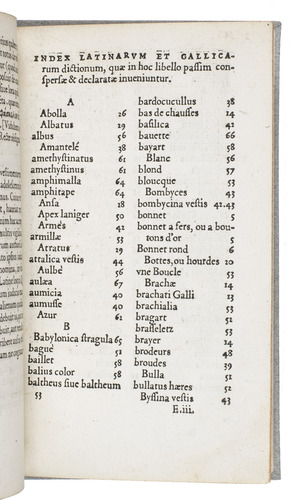 INDEX LATINARVM ET GALLICA-
rum dictionum, quæ in hoc libello passim con-
spersæ & declaratæ inveniuntur.
A
Abolla 26
Albatus 29
albus 56
Amantelé 38
amethystinatus 61
amethystinus 61
amphimalla 64
amphitape 64
Ansa 18
Apex laniger 50
Armés 42
armillæ 53
Atratus 29
attalica vestis 44
Aulbe 56
aulæa 67
aumicia 40
aumusse 40
Azur 61
B
Babylonica stragula 65
bague 51
baillet 58
balius color 58
baltheus siue baltheum
53
bardocucullus 38
bas de chausses 14
basilica 42
bauette 66
bayart 58
Blanc 56
blond 57
bloucque 53
Bombyces 43
bombycina vestis 42.43
bonnet 5
bonnet a fers, ou a bou
tons d'or 5
Bonnet rond 6
Bottes, ou hourdes 20
vne Boucle 53
Brachæ 14
brachati Galli 13
brachialia 53
bragart 51
brasseletz 53
brayer 14
brodeurs 48
broudes 39
Bulla 52
bullatus hæres 52
Byssina vestis 43
E.iii.